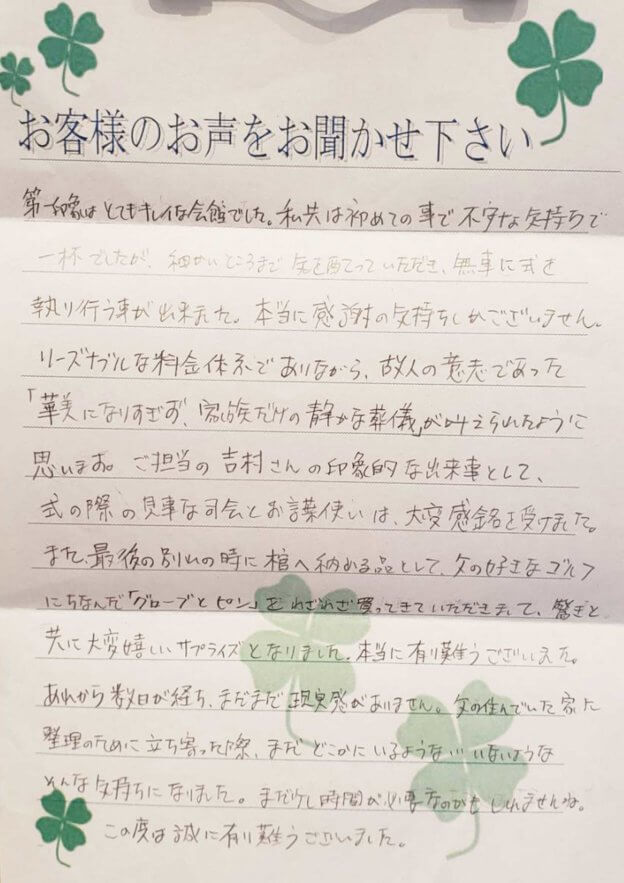 お客様のお声をお聞かせ下さい
第一印象はとてもキレイな会館でした。私共は初めての事で不安な気持ちで
一杯でしたが、細かいところまで気を配っていただき、無事に式を
執り行う事が出来ました。本当に感謝の気持ちしかございません。
リーズナブルな料金体系でありながら、故人の意志であった
「華美になりすぎず、家族だけの静かな葬儀」が叶えられたように
思います。ご担当の吉村さんの印象的な出来事として、
式の際の見事な司会とお言葉使いは、大変感銘を受けました。
また、最後の別れの時に棺へ納める品として、父の好きなゴルフ
にちなんだ「グローブとピン」をわざわざ買ってきていただきまして、驚きと
共に大変嬉しいサプライズとなりました。本当に有り難うございました。
あれから数日が経ち、まだまだ現実感がありません。父の住んでいた家に
整理のために立ち寄った際、まだどこかにいるような…いないような
そんな気持ちになりました。まだ少し時間が必要なのかもしれませんね。
この度は誠に有り難うございました。